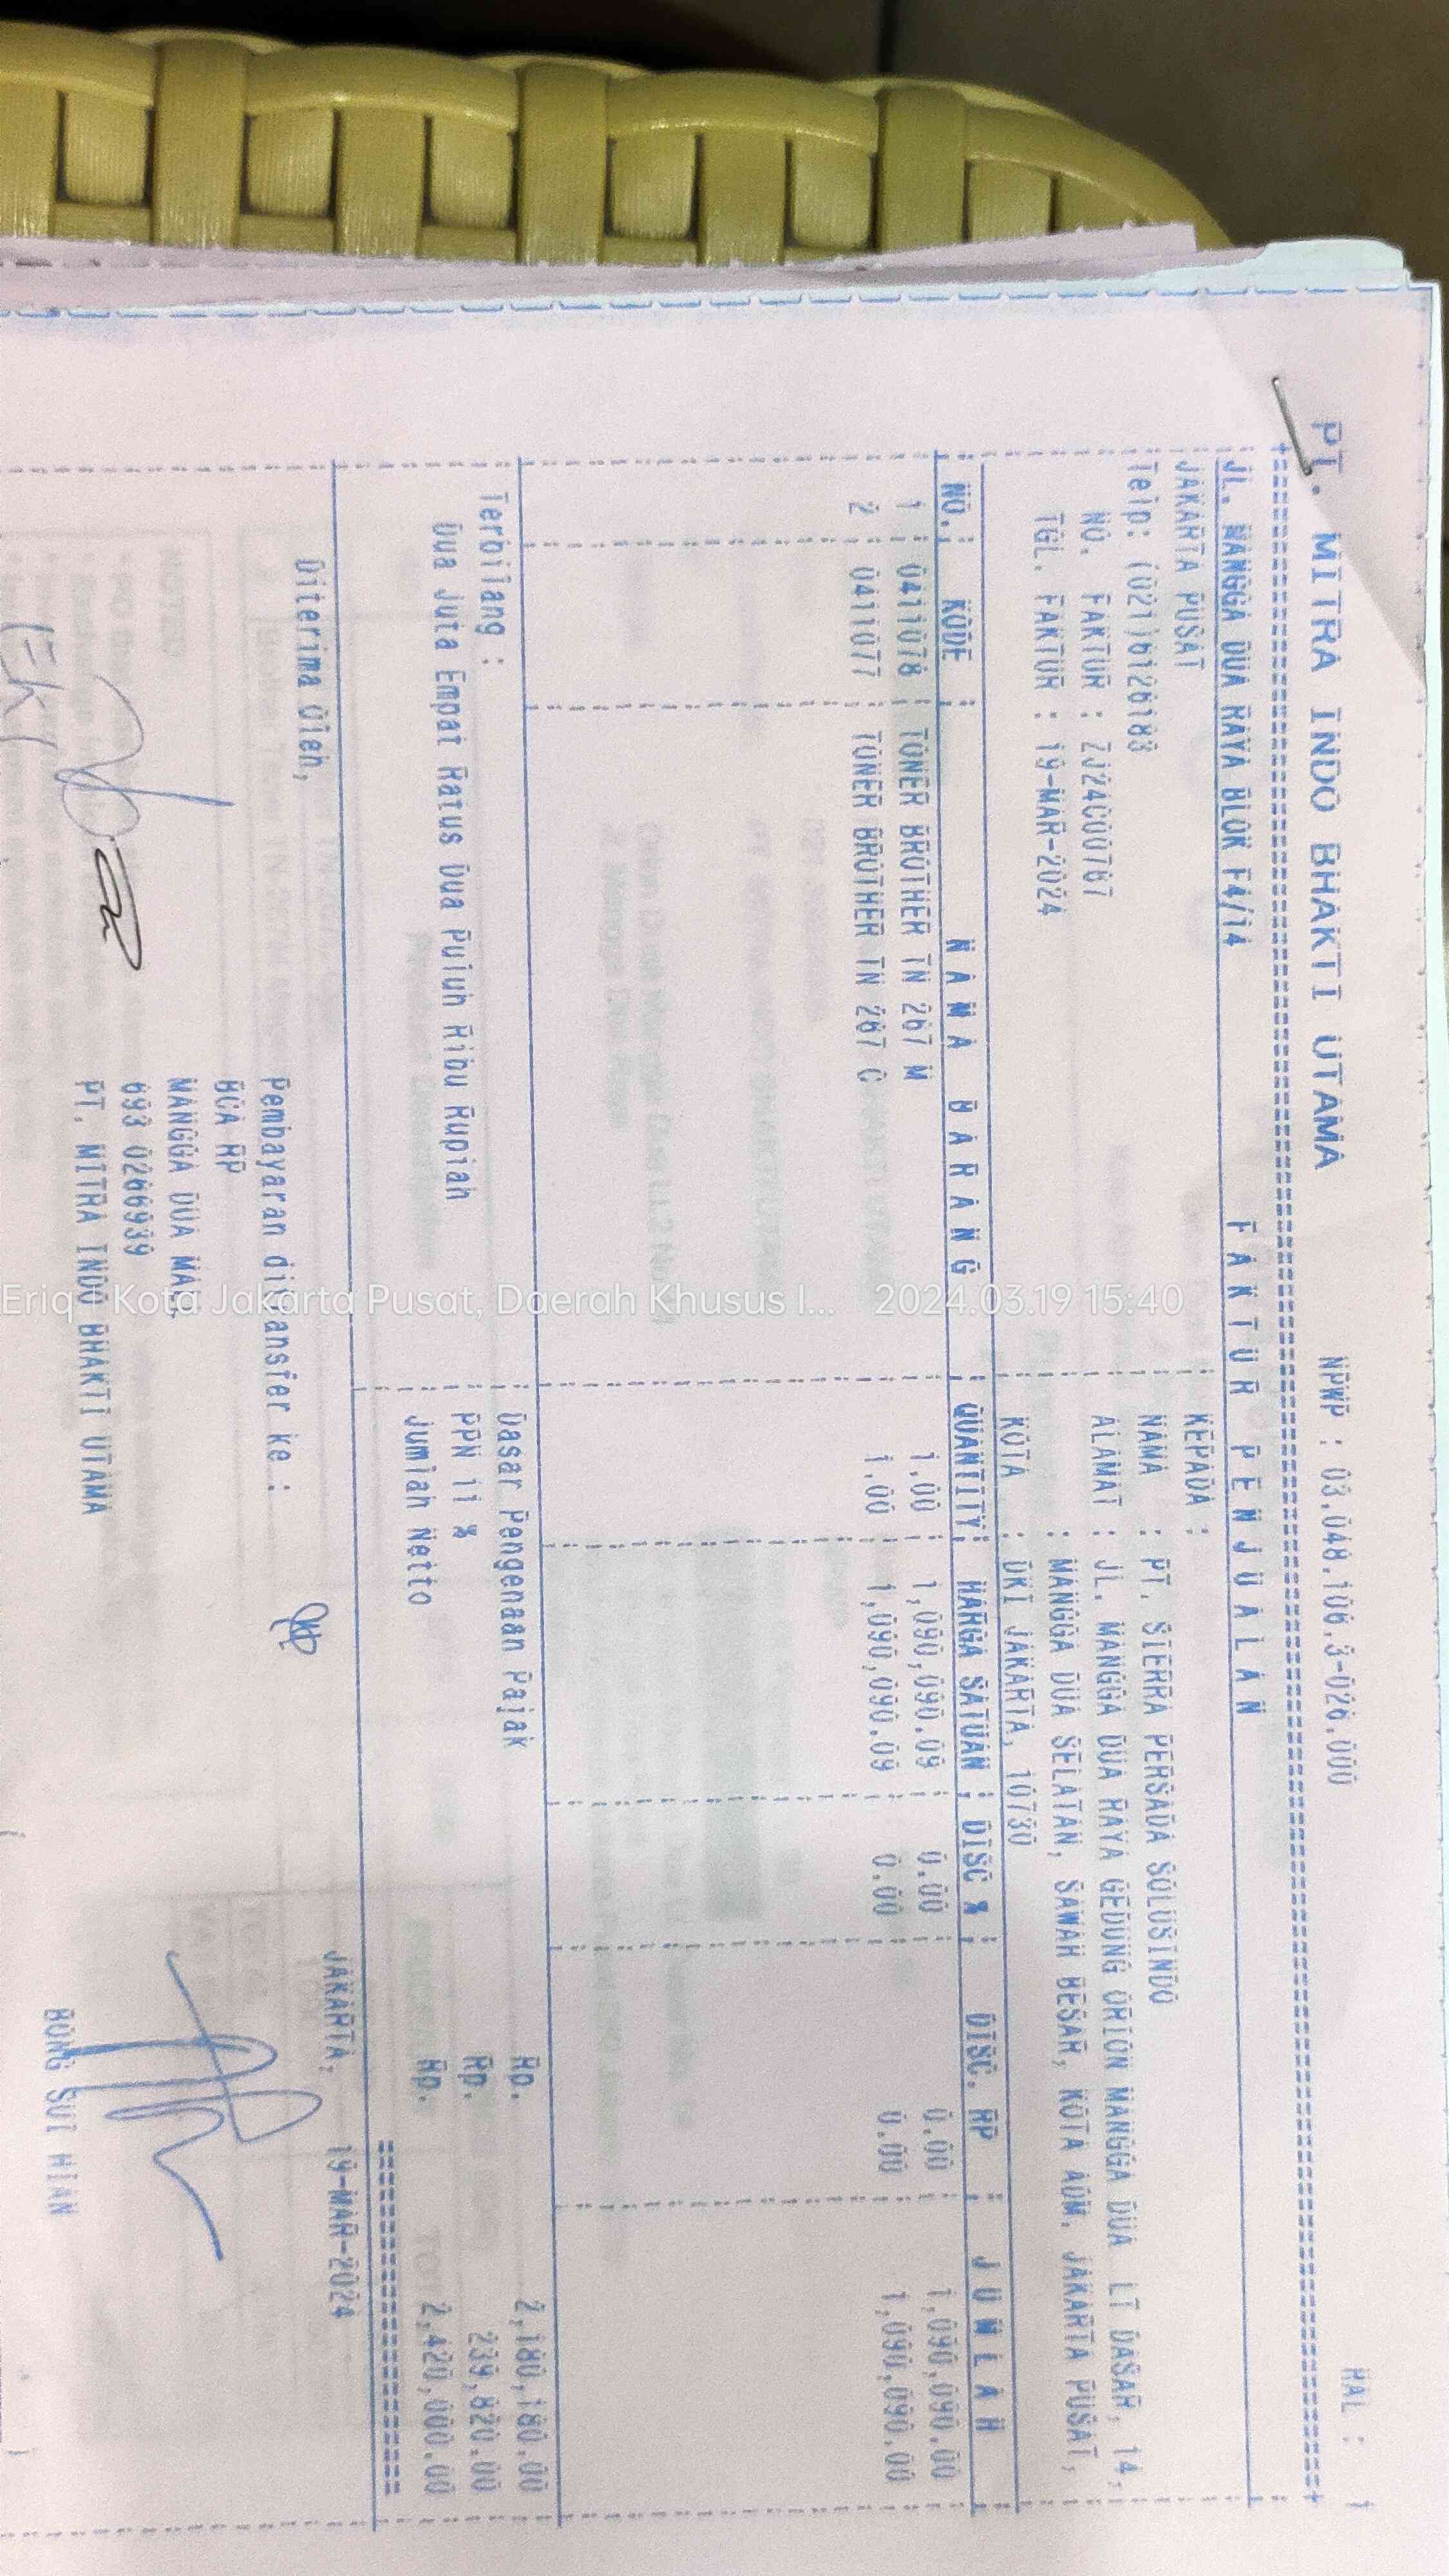 PT. MITRA INDO BHAKTI UTAMA NPWP : 03.048.106.3-026.000 HAL : 1
JL. MANGGA DUA RAYA BLOK F4/14 FAKTUR PENJUALAN
JAKARTA PUSAT KEPADA :
Telp: (021)6126183 NAMA : PT. SIERRA PERSADA SOLUSINDO
NO. FAKTUR : ZJ24C00767 ALAMAT : JL. MANGGA DUA RAYA GEDUNG ORION MANGGA DUA LT DASAR, 14,
TGL. FAKTUR : 19-MAR-2024 : MANGGA DUA SELATAN, SAWAH BESAR, KOTA ADM. JAKARTA PUSAT,
KOTA : DKI JAKARTA, 10730
NO. : KODE : NAMA BARANG : QUANTITY : HARGA SATUAN : DISC % : DISC. RP : JUMLAH
1 : 0411078 : TONER BROTHER TN 267 M 1.00 : 1,090,090.09 : 0.00 0.00 1,090,090.00
2 : 0411077 : TONER BROTHER TN 267 C 1.00 : 1,090,090.09 : 0.00 0.00 1,090,090.00
Terbilang : Dasar Pengenaan Pajak Rp. 2,180,180.00
Dua Juta Empat Ratus Dua Puluh Ribu Rupiah PPN 11 % Rp. 239,820.00
Jumlah Netto Rp. 2,420,000.00
Diterima Oleh, JAKARTA, 19-MAR-2024
Pembayaran ditransfer ke :
BCA RP
MANGGA DUA MALL
693 0266939
PT. MITRA INDO BHAKTI UTAMA BONG SUI HIAN
Eriq Kota Jakarta Pusat, Daerah Khusus I... 2024.03.19 15:40